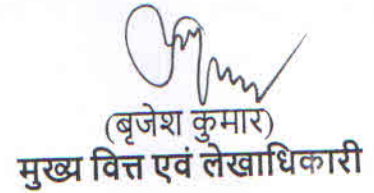 (बृजेश कुमार)
मुख्य वित्त एवं लेखाधिकारी